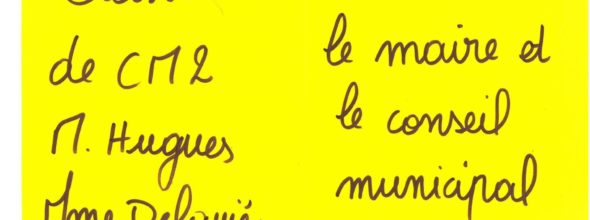 de CM2
M. Hugues
Mme
le maire et
le conseil
municipal